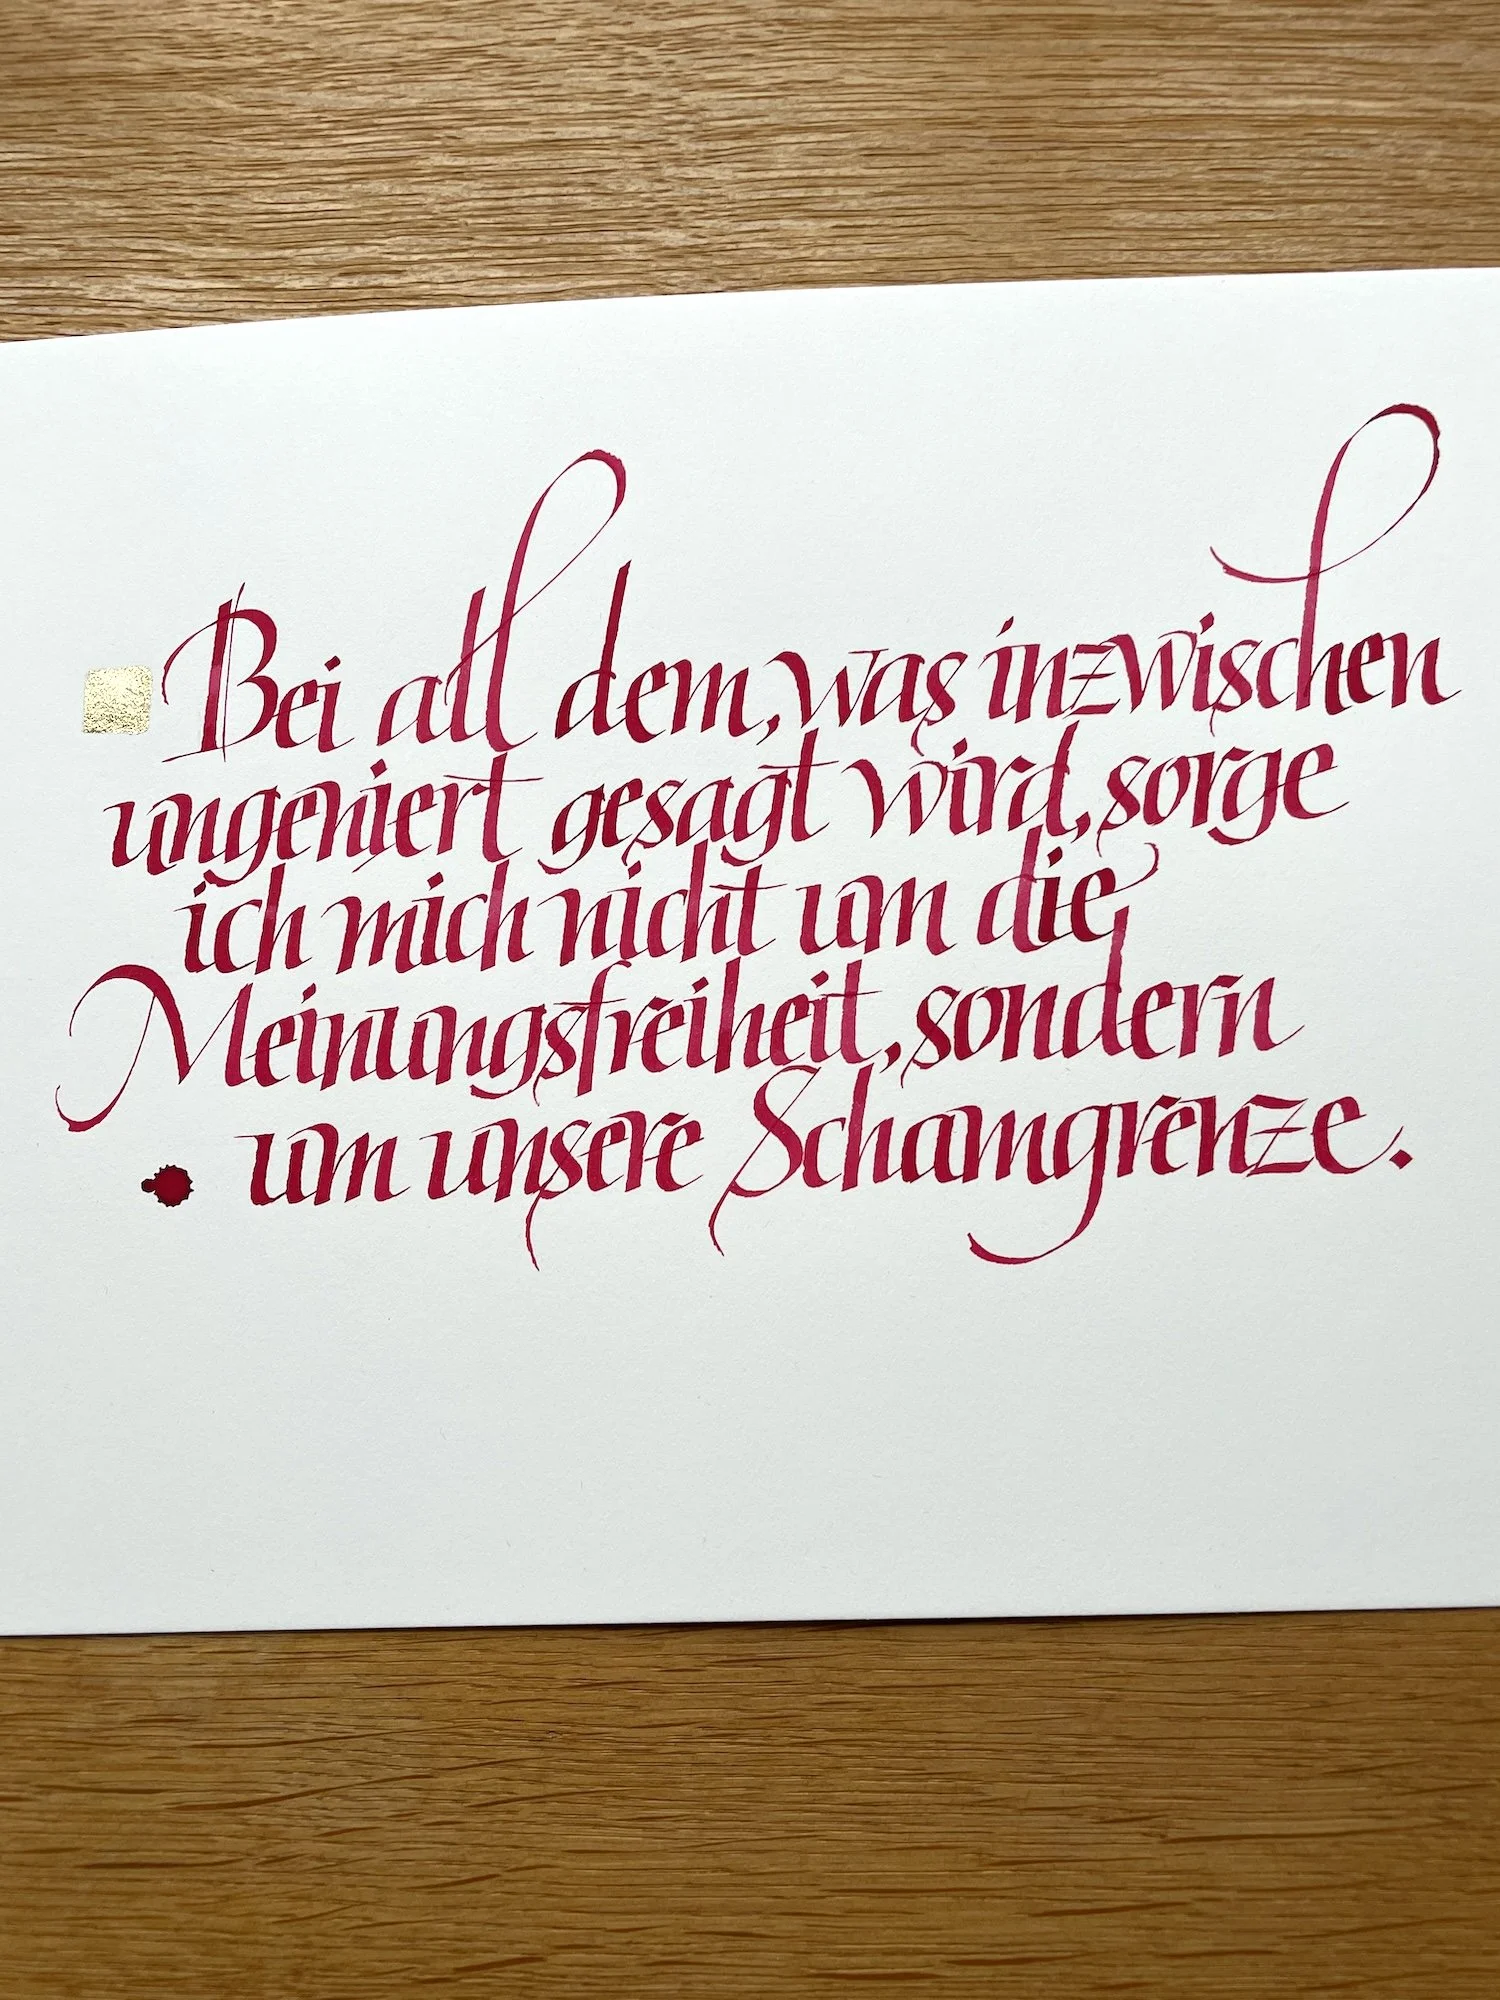 Bei all dem, was inzwischen
ungeniert gesagt wird, sorge
ich mich nicht um die
Meinungsfreiheit, sondern
um unsere Schamgrenze.